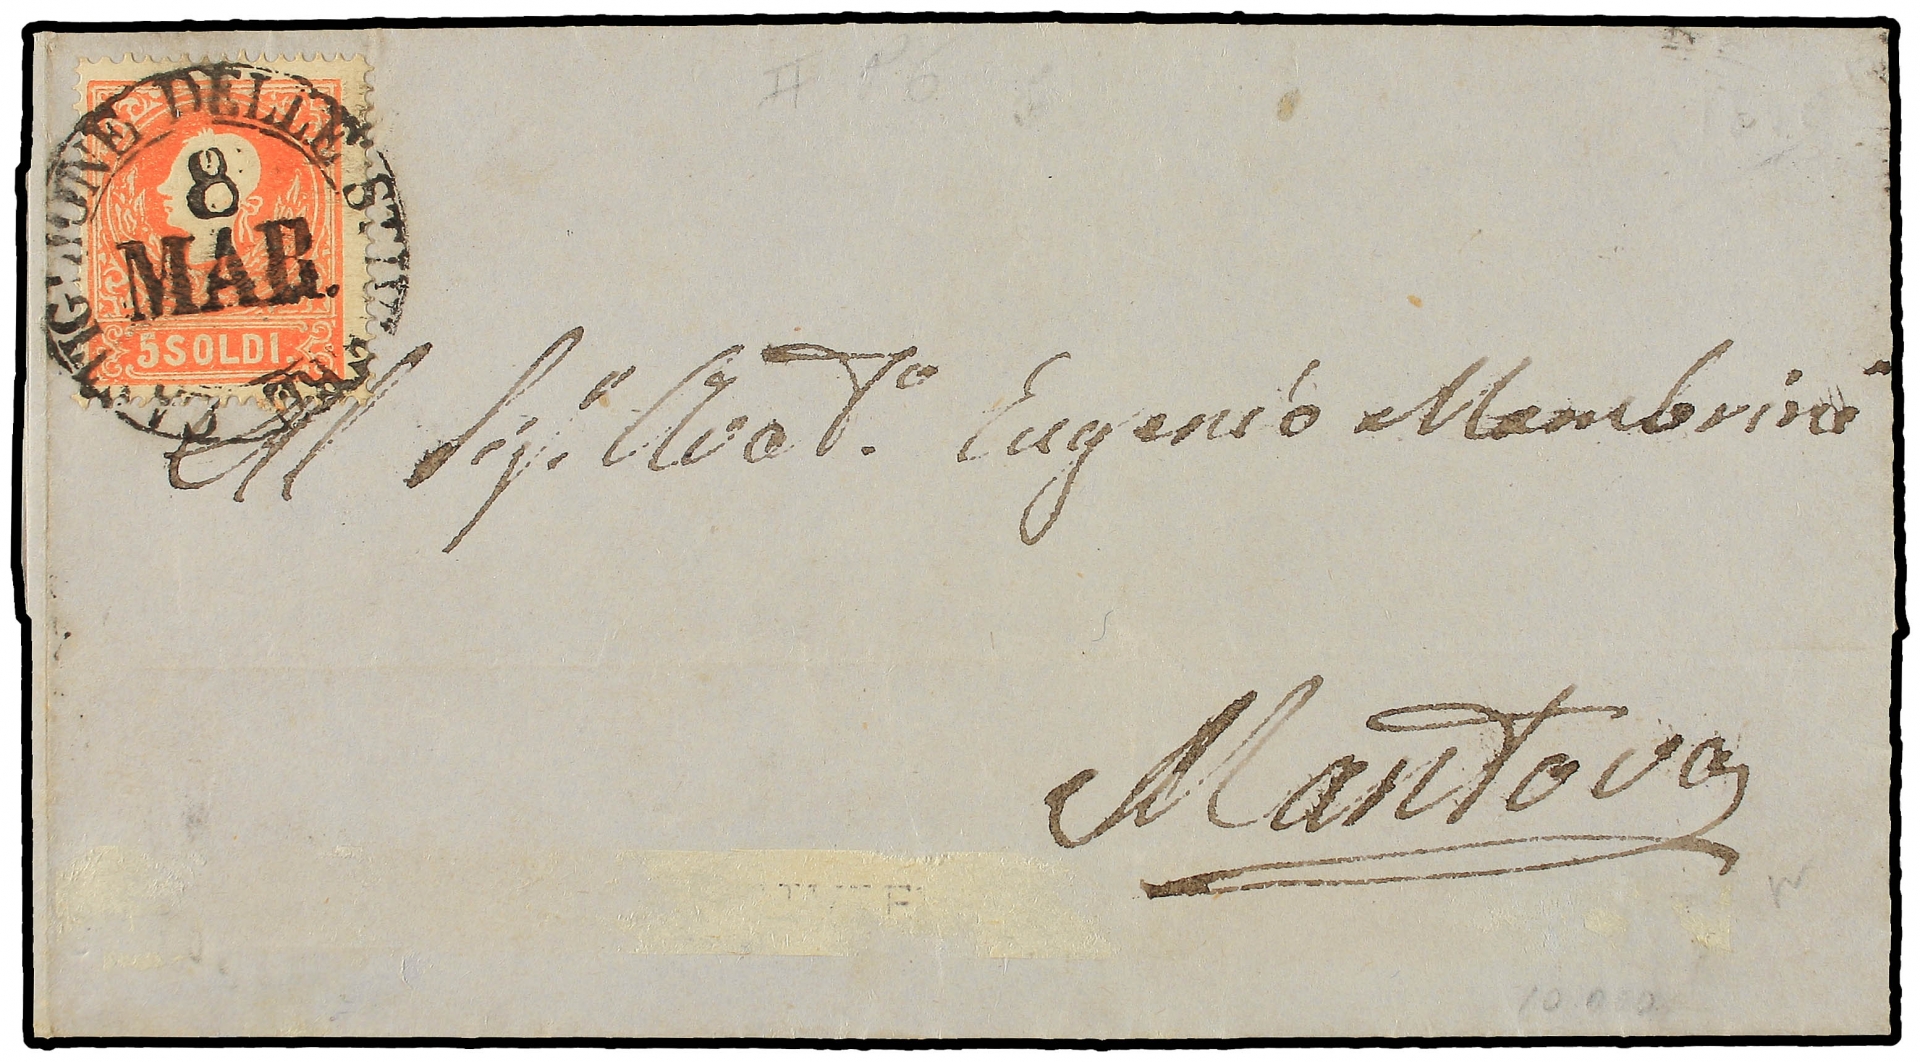 CASTIGLIONE DELLE STIVIERE
8
MAR.
5 SOLDI.
Al Sig.r Avv.to Eugenio Membrini
Mantova
10.000